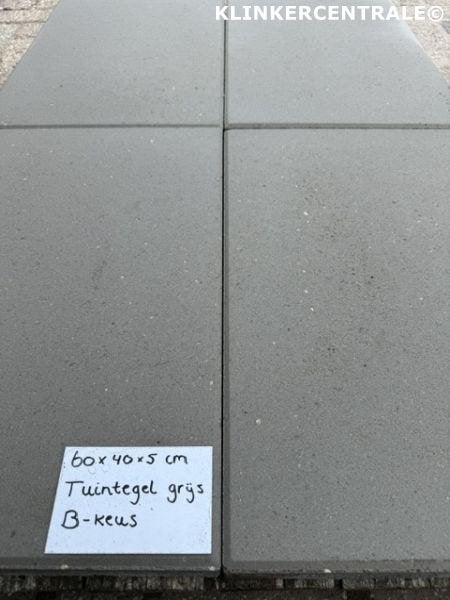 KLINKERCENTRALE©
60x40x5 cm
Tuintegel grijs
B-keus